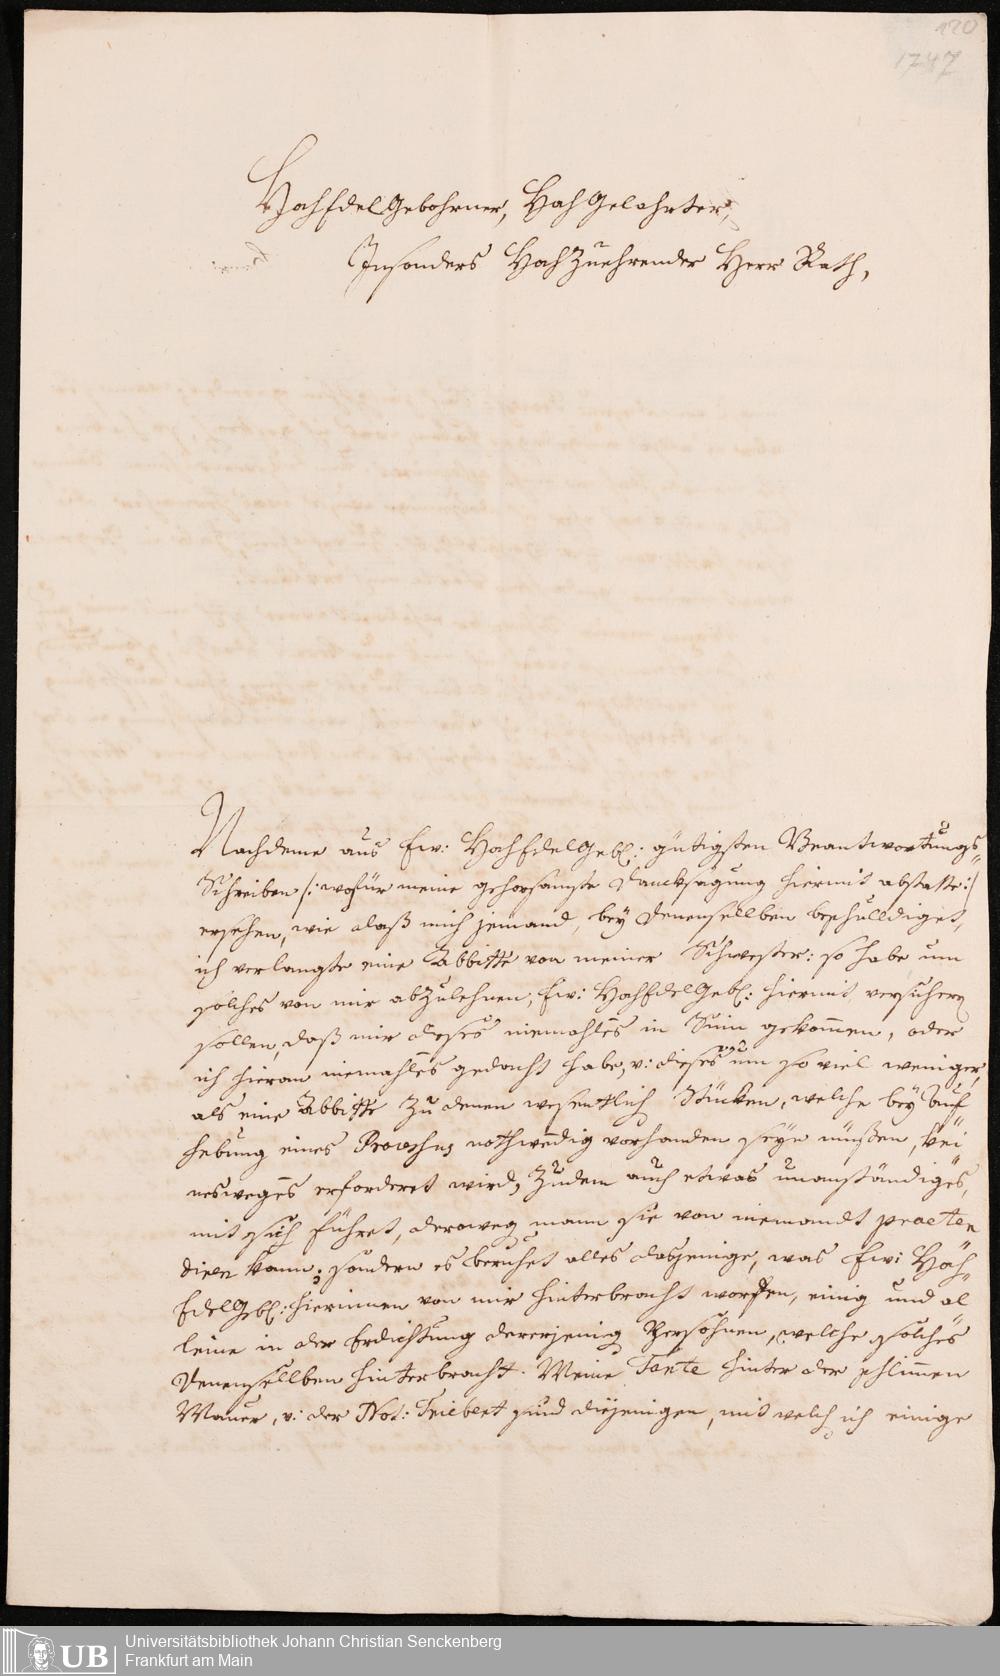 120
1747
HochEdelGebohrner, HochGelahrter,
Insonders HochZuehrender Herr Rath,
Nachdeme aus Ew: HochEdelGeb: gütigsten Beantwortungs-
Schreiben /: wofür meine gehorsamste Dancksagung hiermit abstatte :/
ersehen, wie daß mich jemand, bey Denenselben beschulldiget,
ich verlangte eine Abbitte von meiner Schwester: so habe um
solches von mir abzulehnen, Ew: HochEdelGeb: hiermit versichern
sollen, daß mir dieses niemahles in Sinn gekommen, oder
ich hieran niemahles gedacht habe, u: dieses um so viel weniger,
als eine Abbitte zu denen wesentlich Stücken, welche bey Auf-
hebung eines Processus nothwendig vorhanden seyn müßen, kei-
nesweges erforderet wird, zudem auch etwas unanständiges,
mit sich führet, deroweg mann sie von niemandt praeten
diren kann; sondern es beruhet alles dasjenige, was Ew: Hoch-
EdelGeb: hierinnen von mir hinterbracht worden, einig und al
leine in der Erdichtung dererjenig Persohnen, welche solches
Denenselben hinterbracht. Meine Tante hinter der schlimmen
Mauer, u: der Not: Friebert sind diejenigen, mit welch ich einige
UB
Universitätsbibliothek Johann Christian Senckenberg
Frankfurt am Main